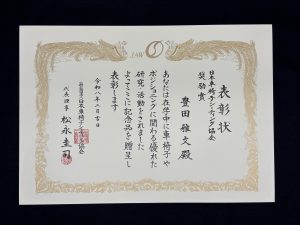 JAW
表彰状
日本車椅子シーティング協会
奨励賞
豊田雅文殿
あなたは在学中に車椅子や
ポジショニングに関わる優れた
研究活動をされました
よってここに記念品を贈呈し
表彰します
令和八年二月吉日
日本車椅子シーティング協会
代表理事 松永圭司